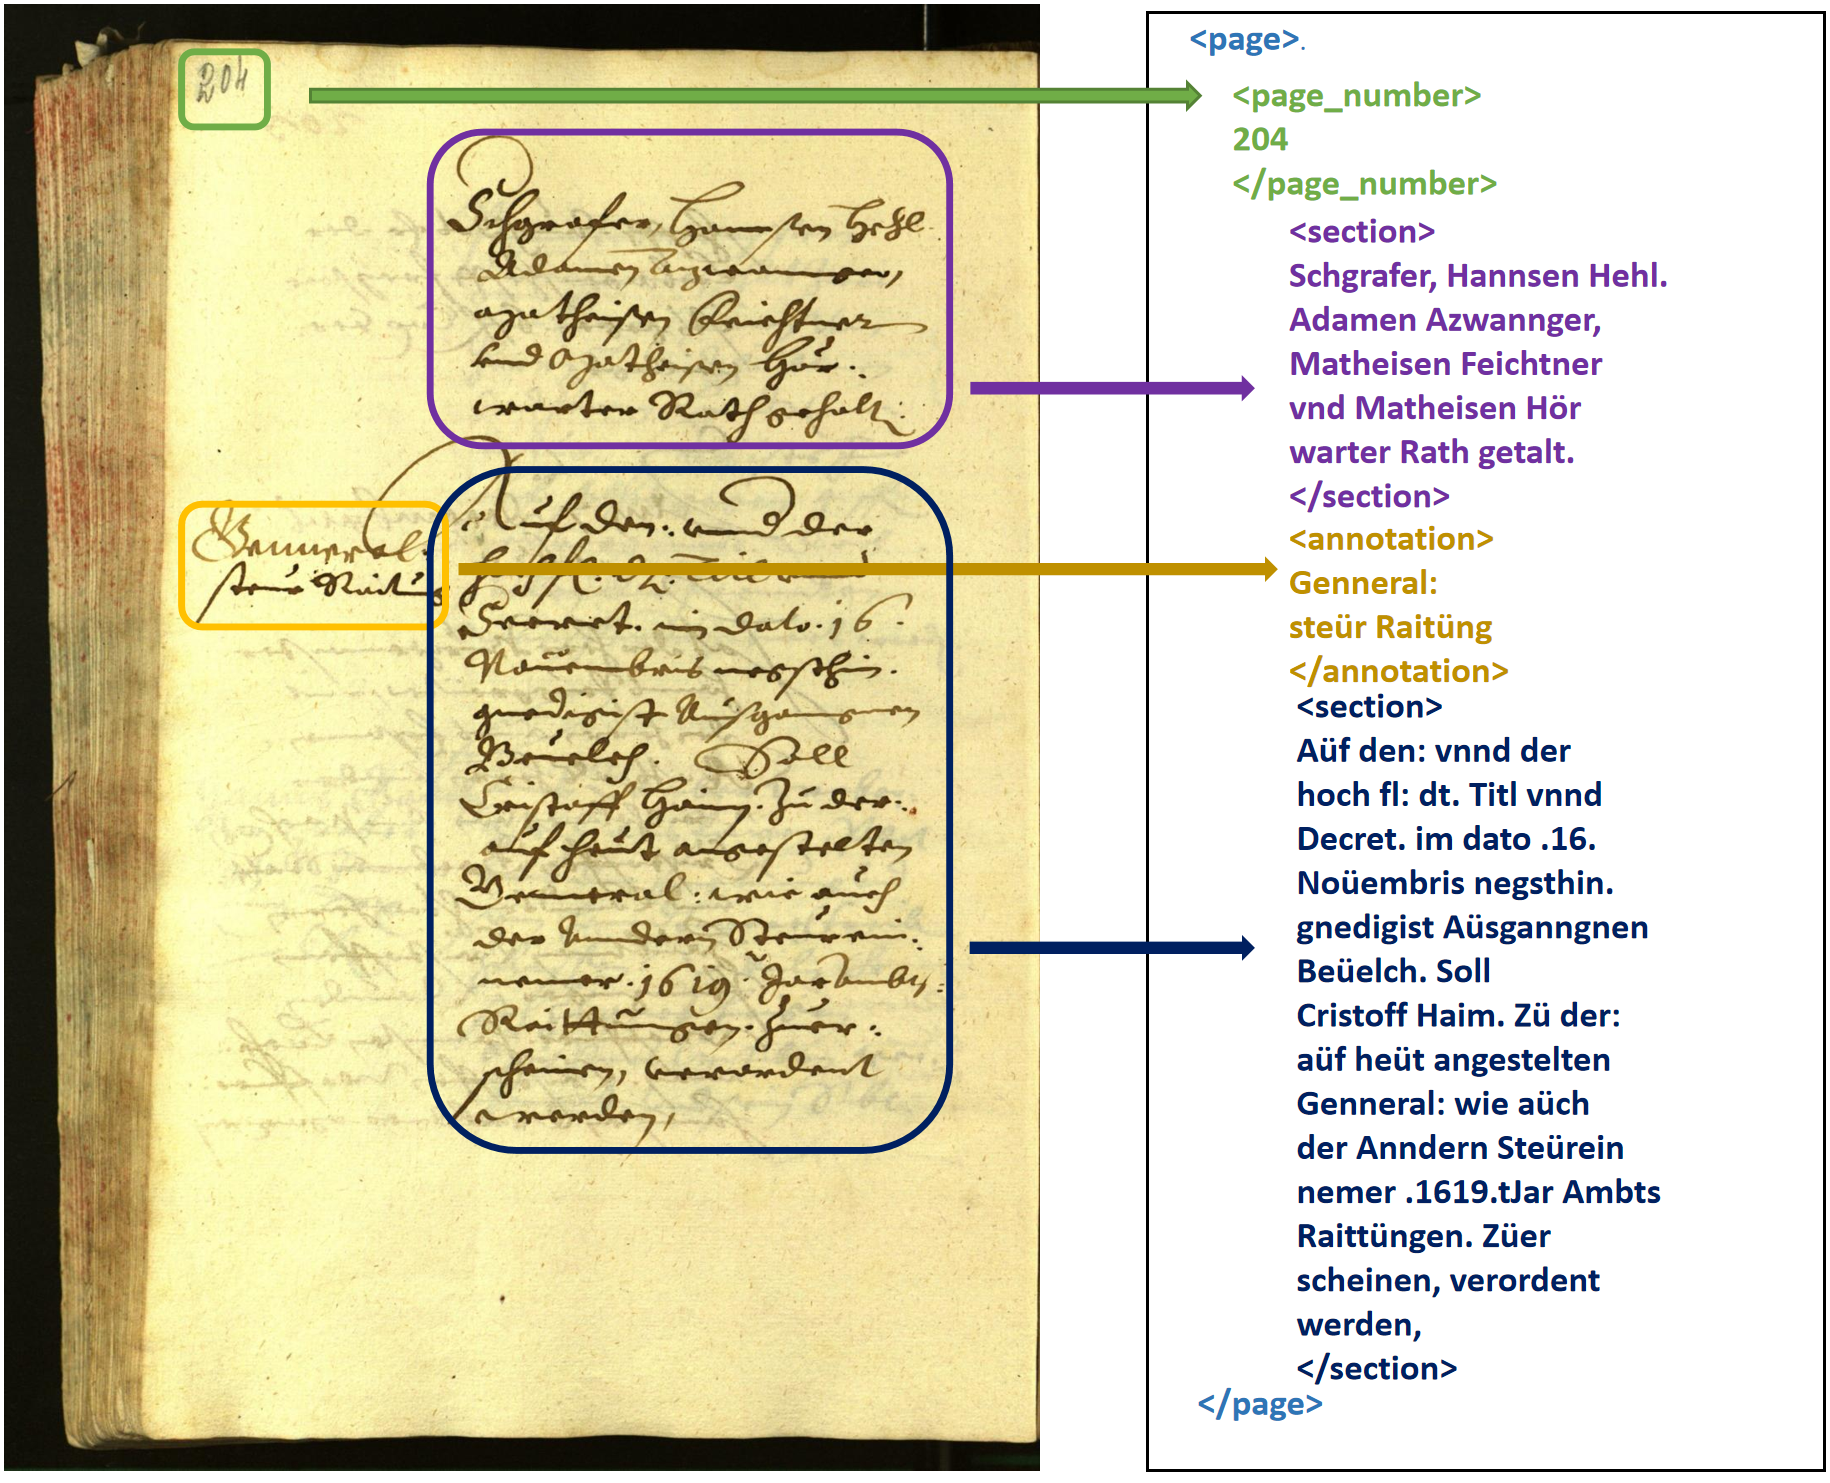 204
Schgrafer, Hannsen Hehl.
Adamen Azwannger,
Matheisen Feichtner
vnd Matheisen Hör:
warter Rath gehalt:
Genneral:
steür Raitüng
Aüf den: vnnd der
hoch fl: dt. Titl vnnd
Decret. im dato .16.
Noüembris negsthin.
gnedigist Aüsganngnen
Beüelch. Soll
Cristoff Haim. Zü der:
aüf heüt angestelten
Genneral: wie aüch
der Anndern Steürein:
nemer .1619. Jar Ambts:
Raittüngen. Züer:
scheinen, verordent
werden,
<page>.
<page_number>
204
</page_number>
<section>
Schgrafer, Hannsen Hehl.
Adamen Azwannger,
Matheisen Feichtner
vnd Matheisen Hör
warter Rath getalt.
</section>
<annotation>
Genneral:
steür Raitüng
</annotation>
<section>
Aüf den: vnnd der
hoch fl: dt. Titl vnnd
Decret. im dato .16.
Noüembris negsthin.
gnedigist Aüsganngnen
Beüelch. Soll
Cristoff Haim. Zü der:
aüf heüt angestelten
Genneral: wie aüch
der Anndern Steürein
nemer .1619.tJar Ambts
Raittüngen. Züer
scheinen, verordent
werden,
</section>
</page>